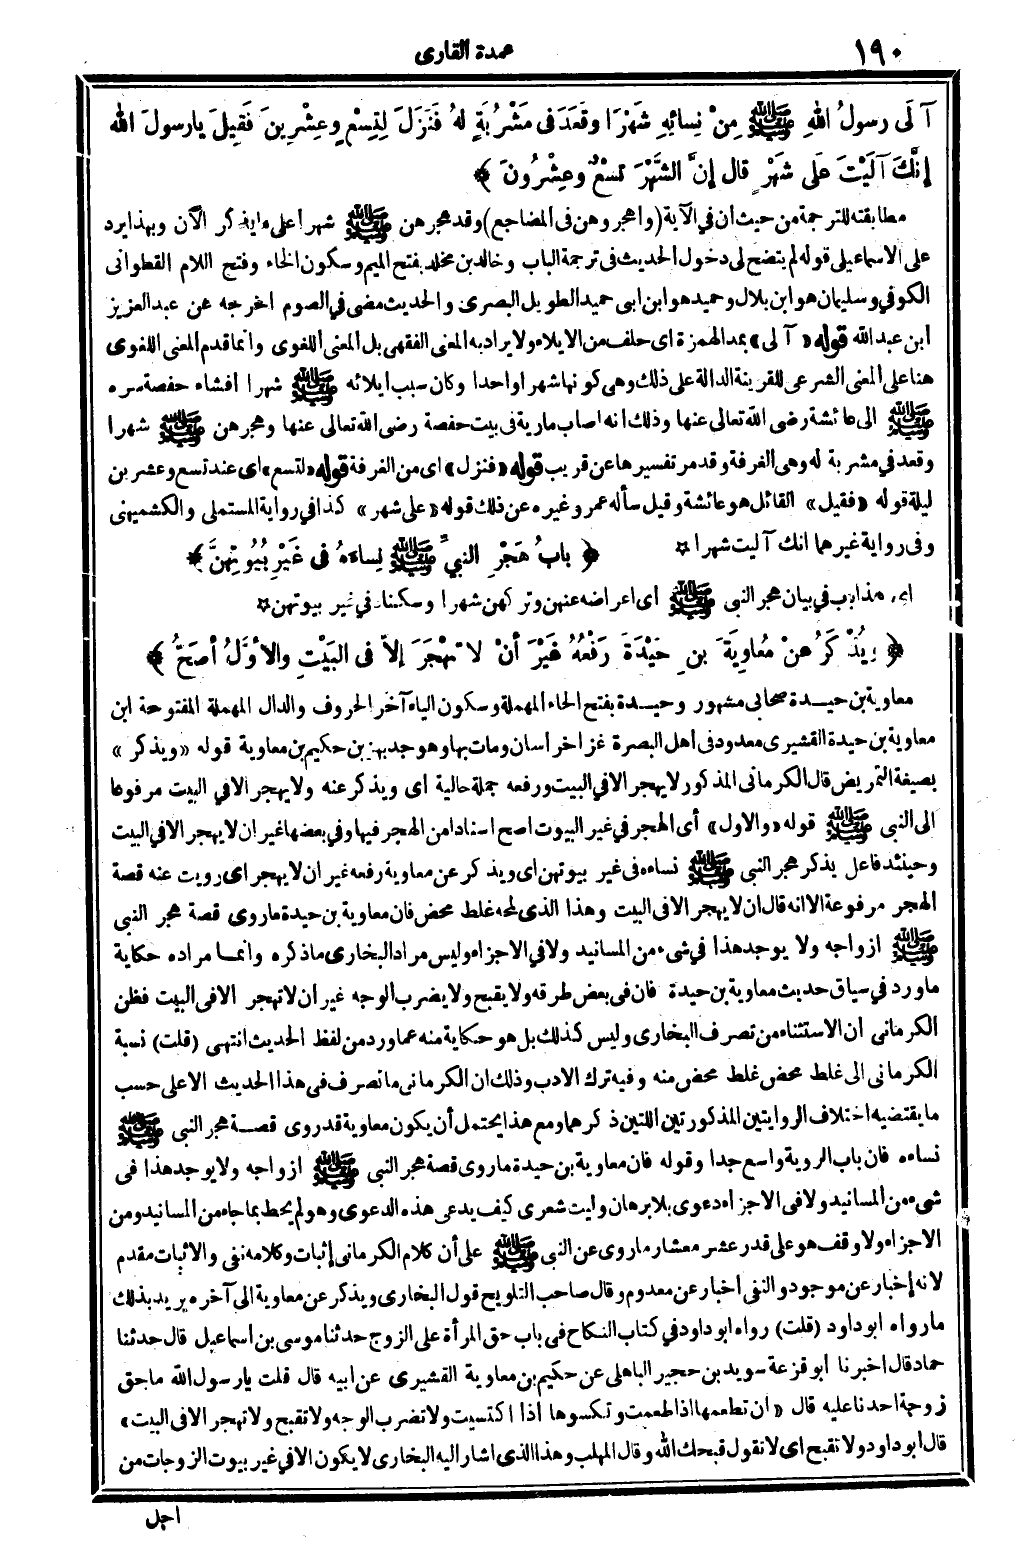 ١٩٠
عمدة القارى
آلَى رسولُ اللهِ ﷺ مِنْ نِسائِهِ شَهْرًا وقَعَدَ فى مَشْرُبَةٍ لهُ فَنَزَلَ لِتِسْعٍ وعِشْرِينَ فَقِيلَ يارسولَ اللهِ
إنَّكَ آلَيْتَ عَلَى شَهْرٍ قال إنَّ الشَّهْرَ تِسْعٌ وعِشْرُونَ ﴾
مطابقته للترجمة من حيث ان في الآية (واهجروهن فى المضاجع) وقد هجرهن ﷺ شهرا على ما يذكر الآن وبهذا يرد
على الاسماعيلى قوله لم يتضح لى دخول الحديث فى ترجمة الباب وخالد بن مخلد بفتح الميم وسكون الخاء وفتح اللام القطوانى
الكوفي وسليمان هو ابن بلال وحميد هو ابن ابى حميد الطويل البصرى والحديث مضى في الصوم اخرجه عن عبد العزيز
ابن عبد الله قوله «آلى» بمد الهمزة اى حلف من الايلاء ولا يراد به المعنى الفقهى بل المعنى اللغوى وانما قدم المعنى اللغوى
هنا على المعنى الشرعى للقرينة الدالة على ذلك وهى كونها شهرا واحدا وكان سبب ايلائه ﷺ شهرا افشاء حفصة سره
ﷺ الى عائشة رضى الله تعالى عنها وذلك انه اصاب مارية فى بيت حفصة رضى الله تعالى عنها وهجرهن ﷺ شهرا
وقعد في مشربة له وهى الغرفة وقد مر تفسيرها عن قريب قوله «فنزل» اى من الغرفة قوله «لتسع» اى عند تسع وعشرين
ليلة قوله «فقيل» القائل هو عائشة وقيل سأله عمر وغيره عن ذلك قوله «على شهر» كذا في رواية المستملى والكشميهنى
وفى رواية غيرهما انك آليت شهرا ☆
﴿ بابُ هَجْرِ النبيِّ ﷺ نِساءَهُ فى غَيْرِ بُيُوتِهِنَّ ﴾
اى هذا باب في بيان هجر النبى ﷺ اى اعراضه عنهن وتركهن شهرا وسكناه فى غير بيوتهن ☆
﴿ ويُذْكَرُ عنْ مُعاوِيَةَ بنِ حَيْدَةَ رَفْعُهُ غَيْرَ أنْ لا تُهْجَرَ إلاّ فى البَيْتِ والأوَّلُ أصَحُّ ﴾
معاوية بن حيدة صحابى مشهور وحيدة بفتح الحاء المهملة وسكون الياء آخر الحروف والدال المهملة المفتوحة ابن
معاوية بن حيدة القشيرى معدود فى أهل البصرة غزا خراسان ومات بها وهو جد بهز بن حكيم بن معاوية قوله «ويذكر»
بصيغة التمريض قال الكرمانى المذكور لا يهجر الا في البيت ورفعه جملة حالية أى ويذكر عنه ولا يهجر الا في البيت مرفوعا
الى النبى ﷺ قوله «والاول» أى الهجر في غير البيوت اصح اسنادا من الهجر فيها وفي بعضها غير ان لا يهجر الا فى البيت
وحينئذ فاعل يذكر هجر النبى ﷺ نساءه فى غير بيوتهن اى ويذكر عن معاوية رفعه غير ان لا يهجر اى رويت عنه قصة
الهجر مرفوعة الا انه قال ان لا يهجر الا فى البيت وهذا الذى لمحه غلط محض فان معاوية بن حيدة ما روى قصة هجر النبى
ﷺ ازواجه ولا يوجد هذا في شىء من المسانيد ولا في الاجزاء وليس مراد البخارى ما ذكره وانما مراده حكاية
ما ورد في سياق حديث معاوية بن حيدة فان فى بعض طرقه ولا يقبح ولا يضرب الوجه غير ان لا تهجر الا فى البيت فظن
الكرمانى ان الاستثناء من تصرف البخارى وليس كذلك بل هو حكاية منه عما ورد من لفظ الحديث انتهى (قلت) نسبة
الكرمانى الى غلط محض غلط محض منه وفيه ترك الادب وذلك ان الكرمانى ما تصرف فى هذا الحديث الا على حسب
ما يقتضيه اختلاف الروايتين المذكورتين اللتين ذكرهما ومع هذا يحتمل أن يكون معاوية قد روى قصة هجر النبى ﷺ
نساءه فان باب الروية واسع جدا وقوله فان معاوية بن حيدة ما روى قصة هجر النبى ﷺ ازواجه ولا يوجد هذا فى
شىء من المسانيد ولا فى الاجزاء دعوى بلا برهان وليت شعرى كيف يدعى هذه الدعوى وهو لم يحط بما جاء من المسانيد ومن
الاجزاء ولا وقف هو على قدر عشر معشار ما روى عن النبى ﷺ على أن كلام الكرمانى إثبات وكلامه نفى والاثبات مقدم
لانه إخبار عن موجود والنفى اخبار عن معدوم وقال صاحب التلويح قول البخارى ويذكر عن معاوية الى آخره يريد بذلك
ما رواه ابو داود (قلت) رواه ابو داود في كتاب النكاح فى باب حق المرأة على الزوج حدثنا موسى بن اسماعيل قال حدثنا
حماد قال اخبرنا أبو قزعة سويد بن حجير الباهلى عن حكيم بن معاوية القشيرى عن ابيه قال قلت يا رسول الله ما حق
زوجة احدنا عليه قال «ان تطعمها اذا طعمت وتكسوها اذا اكتسيت ولا تضرب الوجه ولا تقبح ولا تهجر الا فى البيت»
قال ابو داود ولا تقبح اى لا تقول قبحك الله وقال المهلب وهذا الذى اشار اليه البخارى لا يكون الا في غير بيوت الزوجات من
اجل